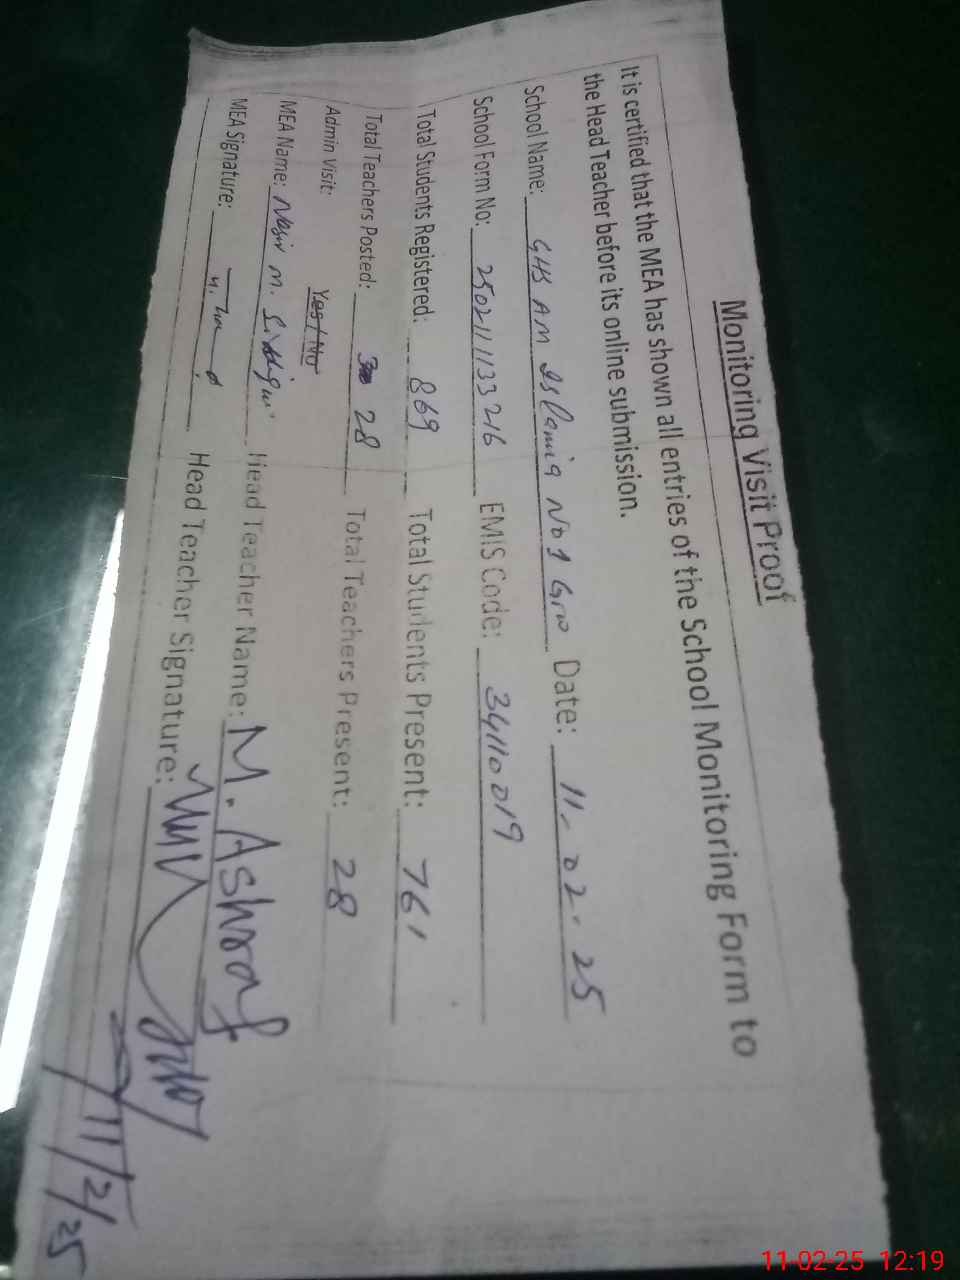 Monitoring Visit Proof
It is certified that the MEA has shown all entries of the School Monitoring Form to
the Head Teacher before its online submission.
School Name: GHS AM Islamia No 1 Grw Date: 11-02-25
School Form No: 250211133216 EMIS Code: 34110019
Total Students Registered: 869 Total Students Present: 761
Total Teachers Posted: 28 Total Teachers Present: 28
Admin Visit: Yes / No
MEA Name: Nasir M. Siddiqui Head Teacher Name: M. Ashraf
MEA Signature: Head Teacher Signature:
11/2/25
11-02-25 12:19